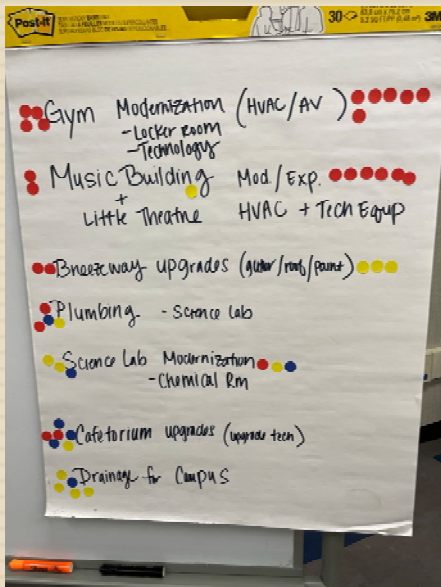 Post-it
30
3M
Gym Modernization (HVAC/AV)
- Locker Room
- Technology
Music Building Mod./Exp.
+
Little Theatre HVAC + Tech Equip
Breezeway upgrades (gutter/roof/paint)
Plumbing - Science lab
Science Lab Modernization
- Chemical Rm
Cafetorium upgrades (upgrade tech)
Drainage for Campus